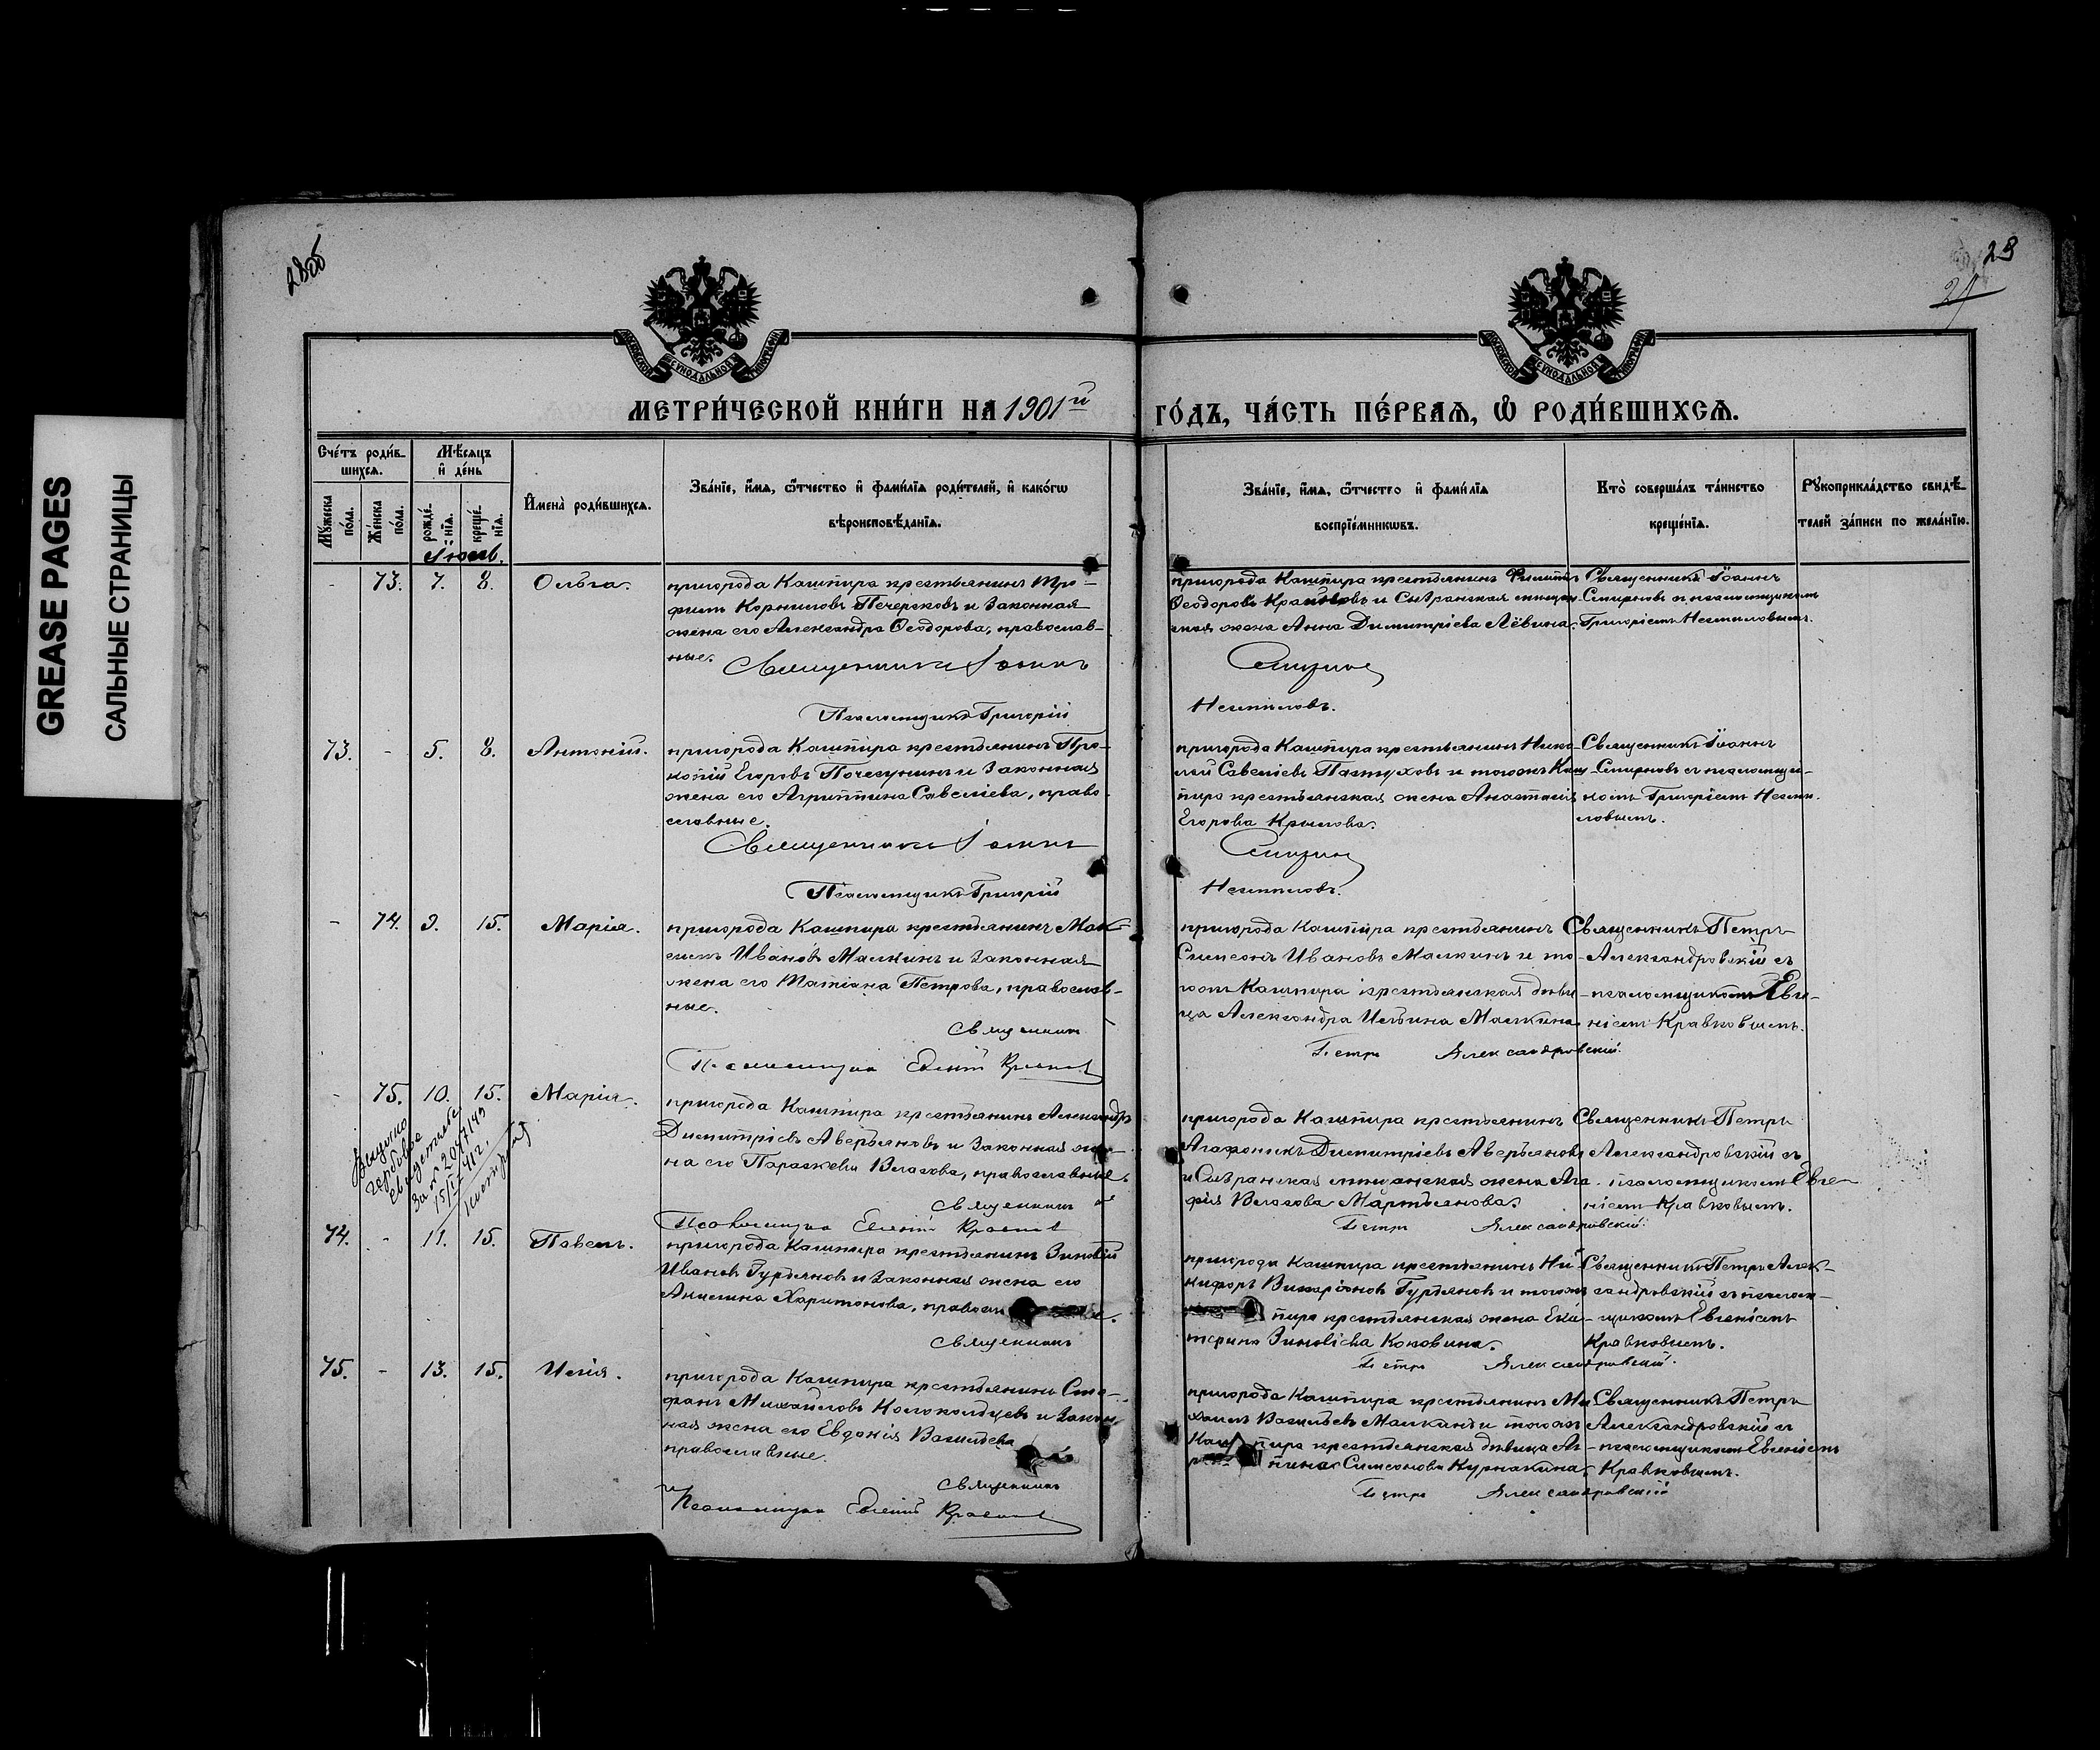 GREASE PAGES
САЛЬНЫЕ СТРАНИЦЫ
28об
29
МОСКОВСКОЙ СѴНОДАЛЬНОЙ ТИПОГРАФІИ
МОСКОВСКОЙ СѴНОДАЛЬНОЙ ТИПОГРАФІИ
МЕТРИ́ЧЕСКОЙ КНИ́ГИ НА 1901й ГО́ДЪ, ЧА́СТЬ ПЕ́РВАЯ, Ѽ РОДИ́ВШИХСЯ.
Сче́тъ роди́в-
шихся.
Мꙋ́жеска по́ла.
Же́нска по́ла.
Мѣ́сяцъ
и҆ де́нь
рожде́-нїя.
креще́-нїя.
И҆мена̀ роди́вшихся.
Зва́нїе, и҆́мя, ѻ҆́тчество и҆ фами́лїя роди́телей, и҆ како́гѡ
вѣроисповѣ́данїя.
Зва́нїе, и҆́мя, ѻ҆́тчество и҆ фами́лїя
воспрїе́мниковъ.
Кто̀ соверша́лъ та́инство
креще́нїя.
Рꙋкоприкла́дство свидѣ́-
телей за́писи по жела́нїю.
Іюль.
- 73. 7. 8. Ольга.
пригорода Кашпира крестьянинъ Тро-
фимъ Корниловъ Печерсковъ и законная
жена его Александра Ѳеодорова, православ-
ные.
Священникъ Іоаннъ
Псаломщикъ Григорій
пригорода Кашпира крестьянинъ Филиппъ
Ѳеодоровъ и Сызранская мѣщан-
ская жена Анна Димитріева Лёвина.
Смирновъ
Несмѣловъ.
Священникъ Іоаннъ
Смирновъ съ псаломщикомъ
Григоріемъ Несмѣловымъ.
73. - 5. 8. Антоній.
пригорода Кашпира крестьянинъ Про-
копій Егоровъ Почекунинъ и законная
жена его Агриппина Савеліева, право-
славные.
Священникъ Іоаннъ
Псаломщикъ Григорій
пригорода Кашпира крестьянинъ Нико-
лай Савеліевъ Пастуховъ и тогожъ Каш-
пира крестьянская жена Анастасія
Егорова Крылова.
Смирновъ
Несмѣловъ.
Священникъ Іоаннъ
Смирновъ съ псаломщи-
комъ Григоріемъ Несмѣ-
ловымъ.
- 74. 9. 15. Марія.
пригорода Кашпира крестьянинъ Мак-
симъ Ивановъ Малкинъ и законная
жена его Татіана Петрова, православ-
ные.
Священникъ
Псаломщикъ Евгеній Кравковъ
пригорода Кашпира крестьянинъ
Симеонъ Ивановъ Малкинъ и то-
гожъ Кашпира крестьянская дѣви-
ца Александра Ильина Малкина.
Петръ Александровскій.
Священникъ Петръ
Александровскій съ
псаломщикомъ Евге-
ніемъ Кравковымъ.
- 75. 10. 15. Марія.
гербовое
за № 2047149
15/IV 1912.
пригорода Кашпира крестьянинъ Александръ
Димитріевъ Аверьяновъ и законная же-
на его Параскева Власова, православные.
Священникъ
Псаломщикъ Евгеній Кравковъ
пригорода Кашпира крестьянинъ
Агафоникъ Димитріевъ Аверьяновъ
и Сызранская мѣщанская жена Ага-
фія Власова Мартьянова.
Петръ Александровскій.
Священникъ Петръ
Александровскій съ
псаломщикомъ Евге-
ніемъ Кравковымъ.
74. - 11. 15. Павелъ.
пригорода Кашпира крестьянинъ Зиновій
Ивановъ Гурьяновъ и законная жена его
Акилина Харитонова, правосл
Священникъ
пригорода Кашпира крестьянинъ Ни-
кифоръ Виссаріоновъ Гурьяновъ и тогожъ
пира крестьянская жена Ека-
терина Зиновіева Коновина.
Петръ Александровскій.
Священникъ Петръ Алек-
сандровскій съ псалом-
щикомъ Евгеніемъ
Кравковымъ.
75. - 13. 15. Илія.
пригорода Кашпира крестьянинъ Сте-
фанъ Михайловъ Колокольцевъ и закон-
ная жена его Евдокія Васильева
православные.
Священникъ
Псаломщикъ Евгеній Кравковъ
пригорода Кашпира крестьянинъ Ми-
хаилъ Васильевъ Малкинъ и тогожъ
Кашпира крестьянская дѣвица Аг-
пина Симеонова Курнакина.
Петръ Александровскій
Священникъ Петръ
Александровскій съ
псаломщикомъ Евгеніемъ
Кравковымъ.